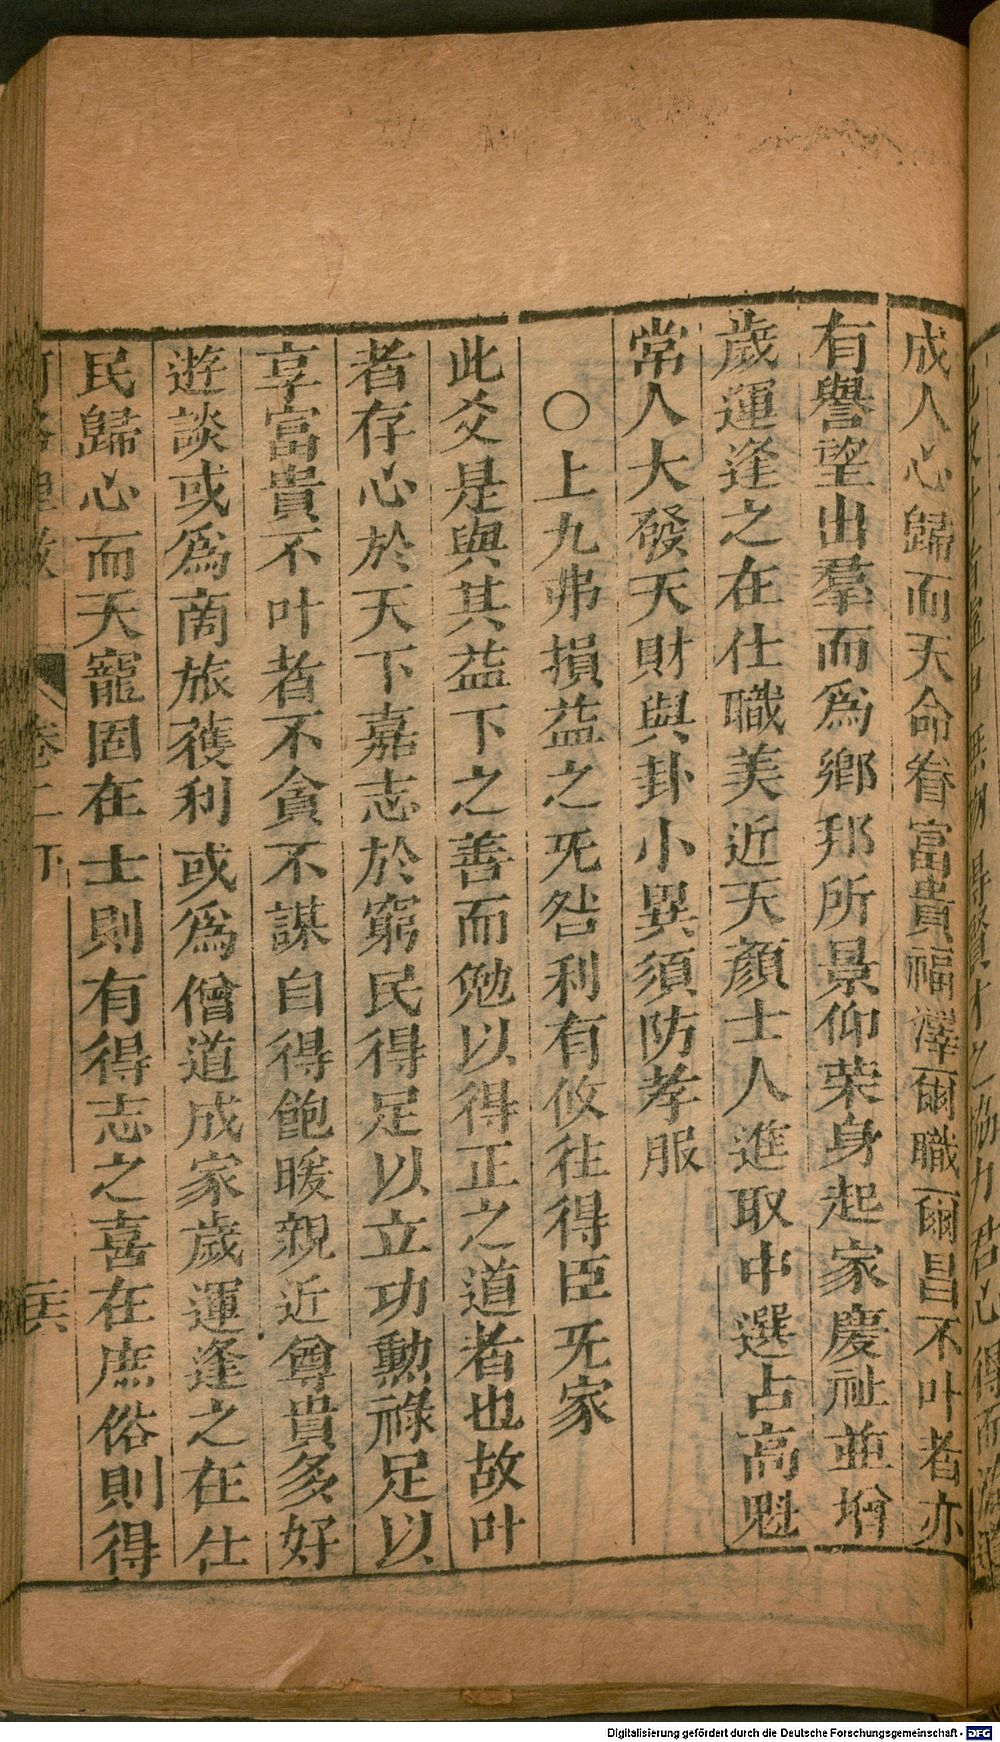 成人心歸而天命眷富貴福澤爾職爾昌不叶者亦
有譽望出羣而爲鄉邦所景仰荣身起家慶祉並增
歲運逢之在仕職美近天顏士人進取中選占高魁
常人大發天財與卦小異須防孝服
○上九弗損益之旡咎利有攸往得臣旡家
此爻是與其益下之善而勉以得正之道者也故叶
者存心於天下嘉志於窮民得足以立功勲祿足以
享富貴不叶者不貪不謀自得飽暖親近尊貴多好
遊談或爲商旅獲利或爲僧道成家歲運逢之在仕
民歸心而天寵固在士則有得志之喜在庶俗則得
卷二下
Digitalisierung gefördert durch die Deutsche Forschungsgemeinschaft - DFG